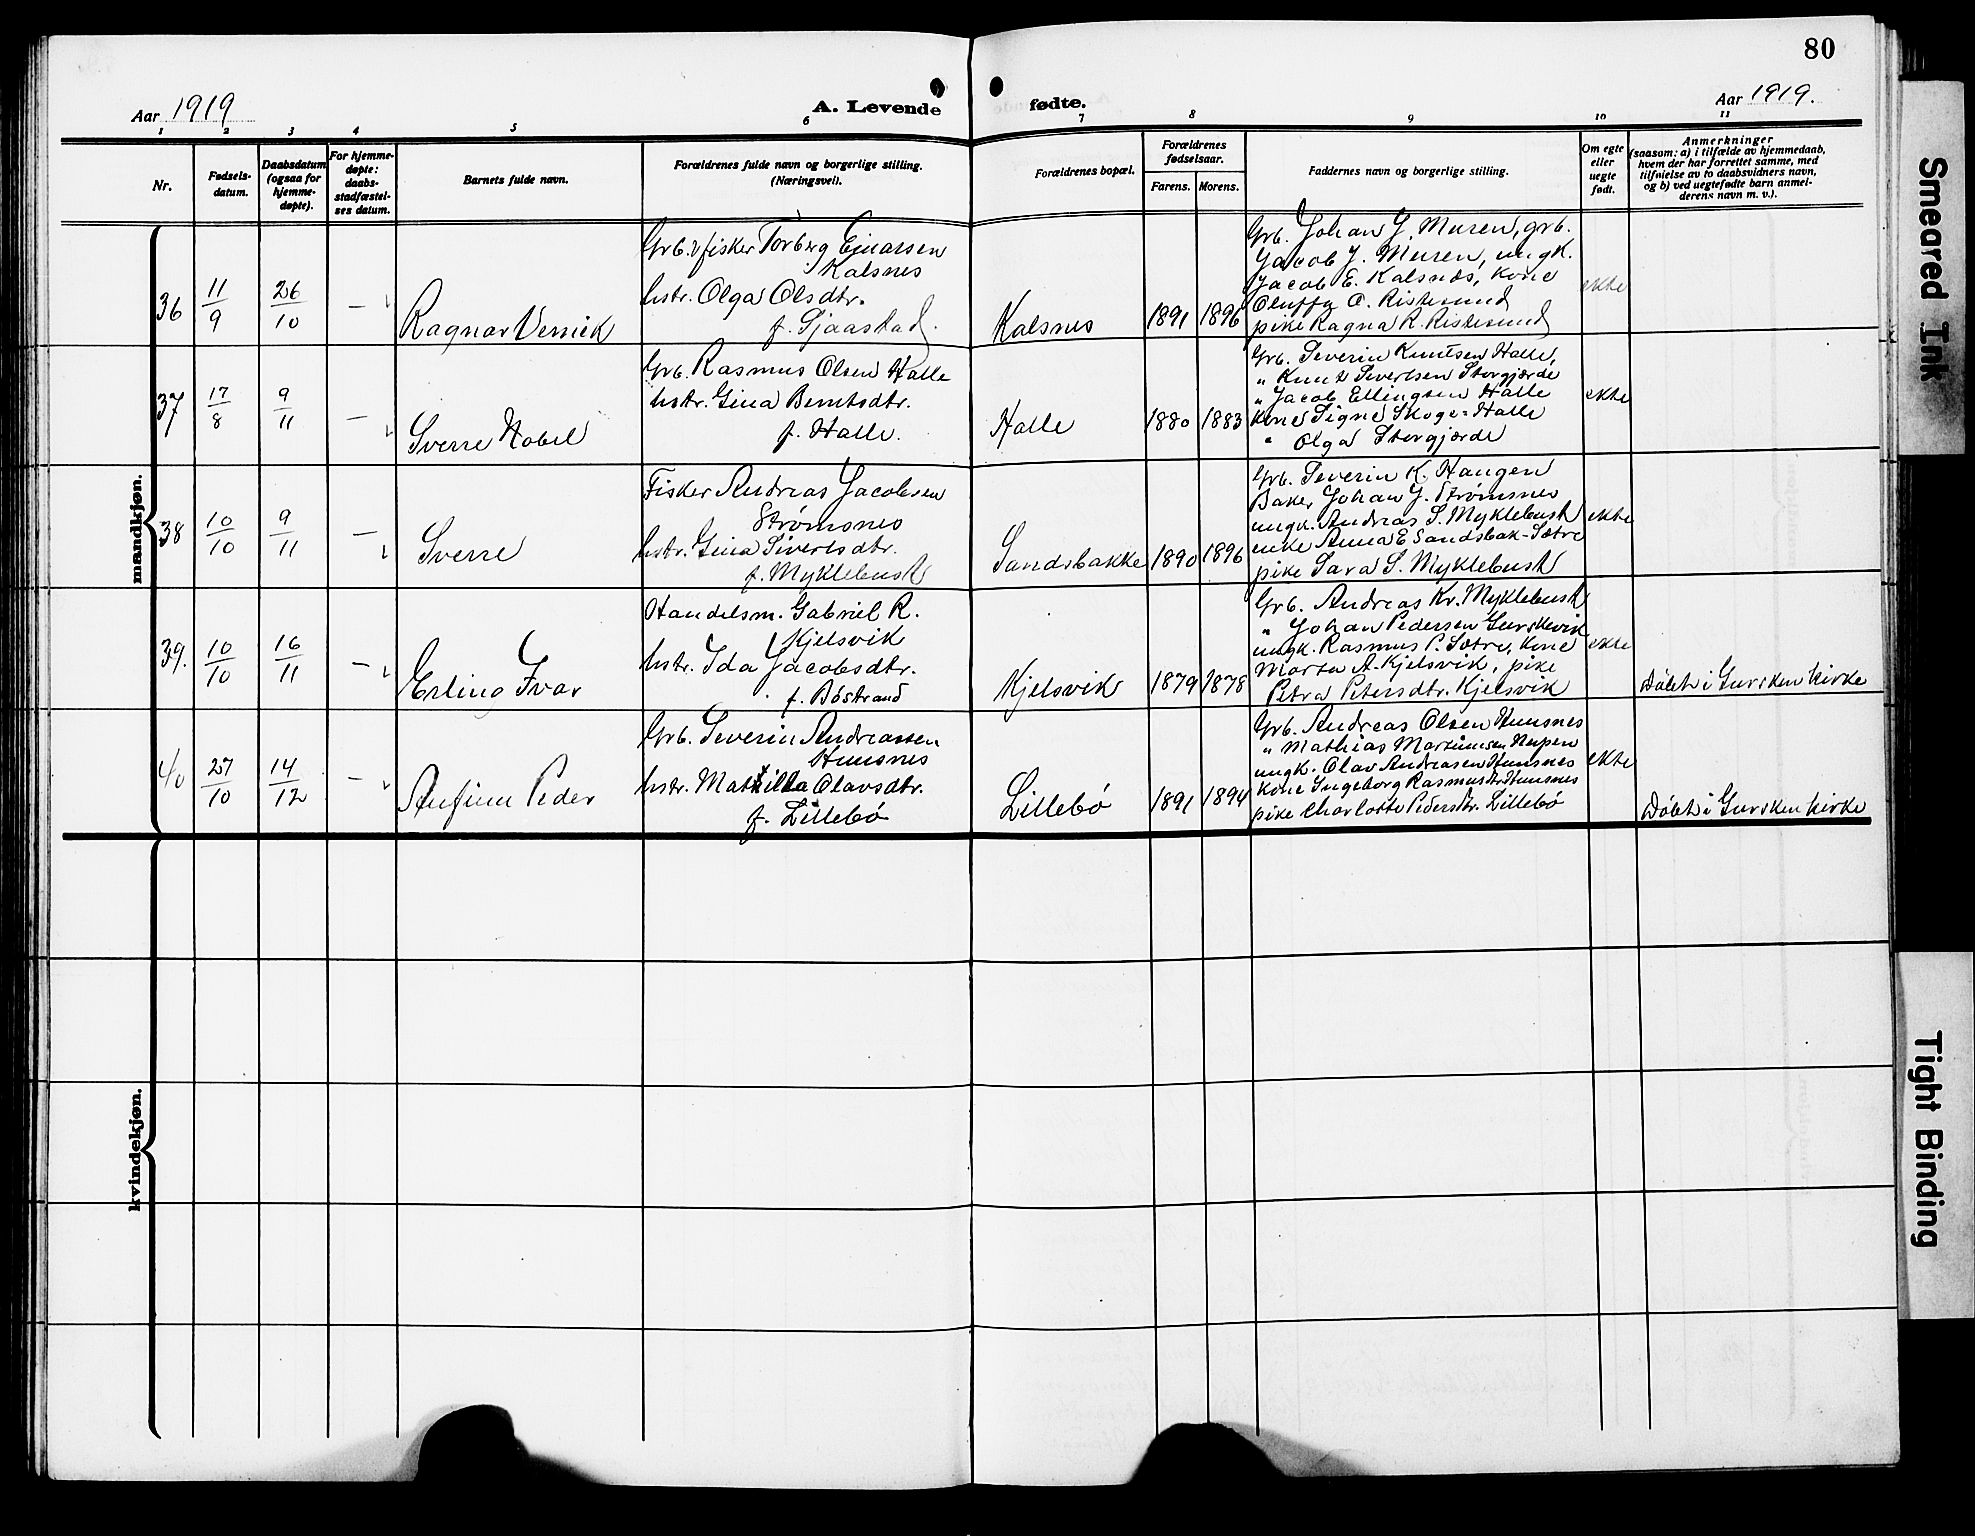 80
Aar 1919
A. Levende
fødte.
Aar 1919.
1 2 3 4 5 6 7 8 9 10 11
Nr.
Fødsels-
datum.
Daabsdatum
(ogsaa for
hjemme-
døpte).
For hjemme-
døpte:
daabs-
stadfæstel-
ses datum.
Barnets fulde navn.
Forældrenes fulde navn og borgerlige stilling.
(Næringsvei).
Forældrenes bopæl.
Forældrenes
fødselsaar.
Farens. Morens.
Faddernes navn og borgerlige stilling.
Om egte
eller
uegte
født.
Anmerkninger
(saasom: a) i tilfælde av hjemmedaab,
hvem der har forrettet samme, med
tilføielse av to daabsvidners navn,
og b) ved uegtefødte barn anmel-
derens navn m. v.).
mandkjøn.
36
11/9
26/10
—
Ragnar Vernik
Grb. & fisker Torberg Ejnarsen
Kalsnes
hstr. Olga Olsdtr.
f. Sjaastad.
Kalsnes
1891
1896
Grb. Johan J. Muren, grb.
Jacob J. Muren, ungk.
Jacob E. Kalsnæs, kone
Oluffa O. Ristesund
pike Ragna R. Ristesund
ekte
37
17/8
9/11
—
Sverre Nobel
Grb. Rasmus Olsen Halle
hstr. Gina Berntsdtr.
f. Halle.
Halle
1880
1883
Grb. Severin Knutsen Halle,
" Knut Sivertsen Storgjærde
" Jacob Ellingsen Halle
Kone Signe Skoge=Halle
" Olga Storgjærde
ekte
38
10/10
9/11
—
Sverre
Fisker Andreas Jacobsen
Strømsnes
hstr. Gina Sivertsdtr.
f. Myklebust
Sandsbakke
1890
1896
Grb. Severin K. Haugen
Baker Johan J. Strømsnes
ungk. Andreas S. Myklebust
enke Anna E Sandsbak-Sætre
pike Sara S. Myklebust
ekte
39.
10/10
16/11
—
Erling Ivar
Handelsm. Gabriel R.
Kjelsvik
hstr. Ida Jacobsdtr.
f. Bøstrand
Kjelsvik
1879
1878
Grb. Andreas Kr. Myklebust
" Johan Pedersen Gurskevik
ungk. Rasmus P. Sætre, Kone
Marta A. Kjelsvik, pike
Petra Petersdtr. Kjelsvik
ekte
Døbt i Gursken kirke
40
27/10
14/12
—
Anfinn Peder
Grb. Severin Andreassen
Huusnes
hstr. Mathilda Olavsdtr.
f. Lillebø
Lillebø
1891
1894
Grb. Andreas Olsen Huusnes
" Mathias Martinusen Nupen
ungk. Olav Andreasen Huusnes
Kone Ingeborg Rasmusdtr Huusnes
pike Charlotte Pedersdtr. Lillebø
ekte
Døbt i Gursken kirke
kvindekjøn.
Smeared Ink
Tight Binding